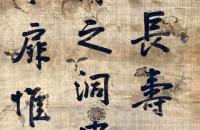 長壽
之洞
扉惟